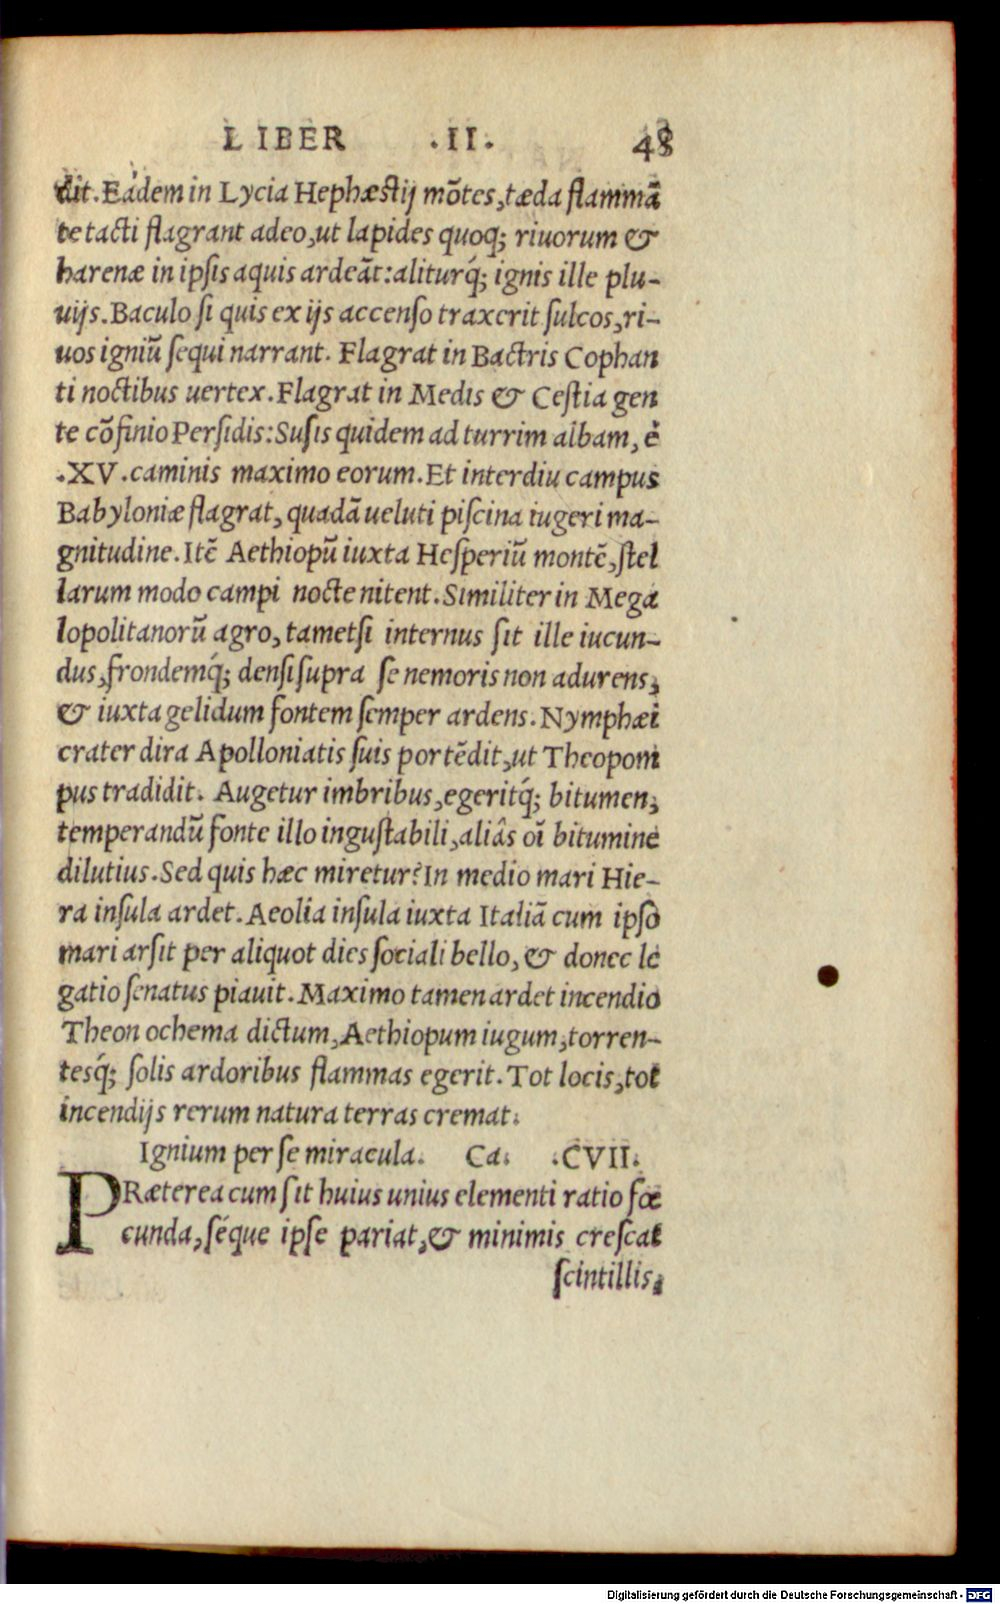 LIBER .II. 48
dit. Eadem in Lycia Hephæstij mõtes, tæda flammã
te tacti flagrant adeo, ut lapides quoq; riuorum &
harenæ in ipsis aquis ardeãt: aliturq́; ignis ille plu-
uijs. Baculo si quis ex ijs accenso traxerit sulcos, ri-
uos igniũ sequi narrant. Flagrat in Bactris Cophan
ti noctibus uertex. Flagrat in Medis & Cestia gen
te cõfinio Persidis: Susis quidem ad turrim albam, è
.XV. caminis maximo eorum. Et interdiu campus
Babyloniæ flagrat, quadã ueluti piscina iugeri ma-
gnitudine. Itẽ Aethiopũ iuxta Hesperiũ montẽ, stel
larum modo campi nocte nitent. Similiter in Mega
lopolitanorũ agro, tametsi internus sit ille iucun-
dus, frondemq́; densi supra se nemoris non adurens,
& iuxta gelidum fontem semper ardens. Nymphæi
crater dira Apolloniatis suis portẽdit, ut Theopom
pus tradidit. Augetur imbribus, egeritq́; bitumen,
temperandũ fonte illo ingustabili, aliâs oĩ bitumine
dilutius. Sed quis hæc miretur? In medio mari Hie-
ra insula ardet. Aeolia insula iuxta Italiã cum ipso
mari arsit per aliquot dies sociali bello, & donec le
gatio senatus piauit. Maximo tamen ardet incendio
Theon ochema dictum, Aethiopum iugum, torren-
tesq́; solis ardoribus flammas egerit. Tot locis, tot
incendijs rerum natura terras cremat.
Ignium per se miracula. Ca. .CVII.
PRæterea cum sit huius unius elementi ratio fœ
cunda, séque ipse pariat, & minimis crescat
scintillis,
Digitalisierung gefördert durch die Deutsche Forschungsgemeinschaft - DFG